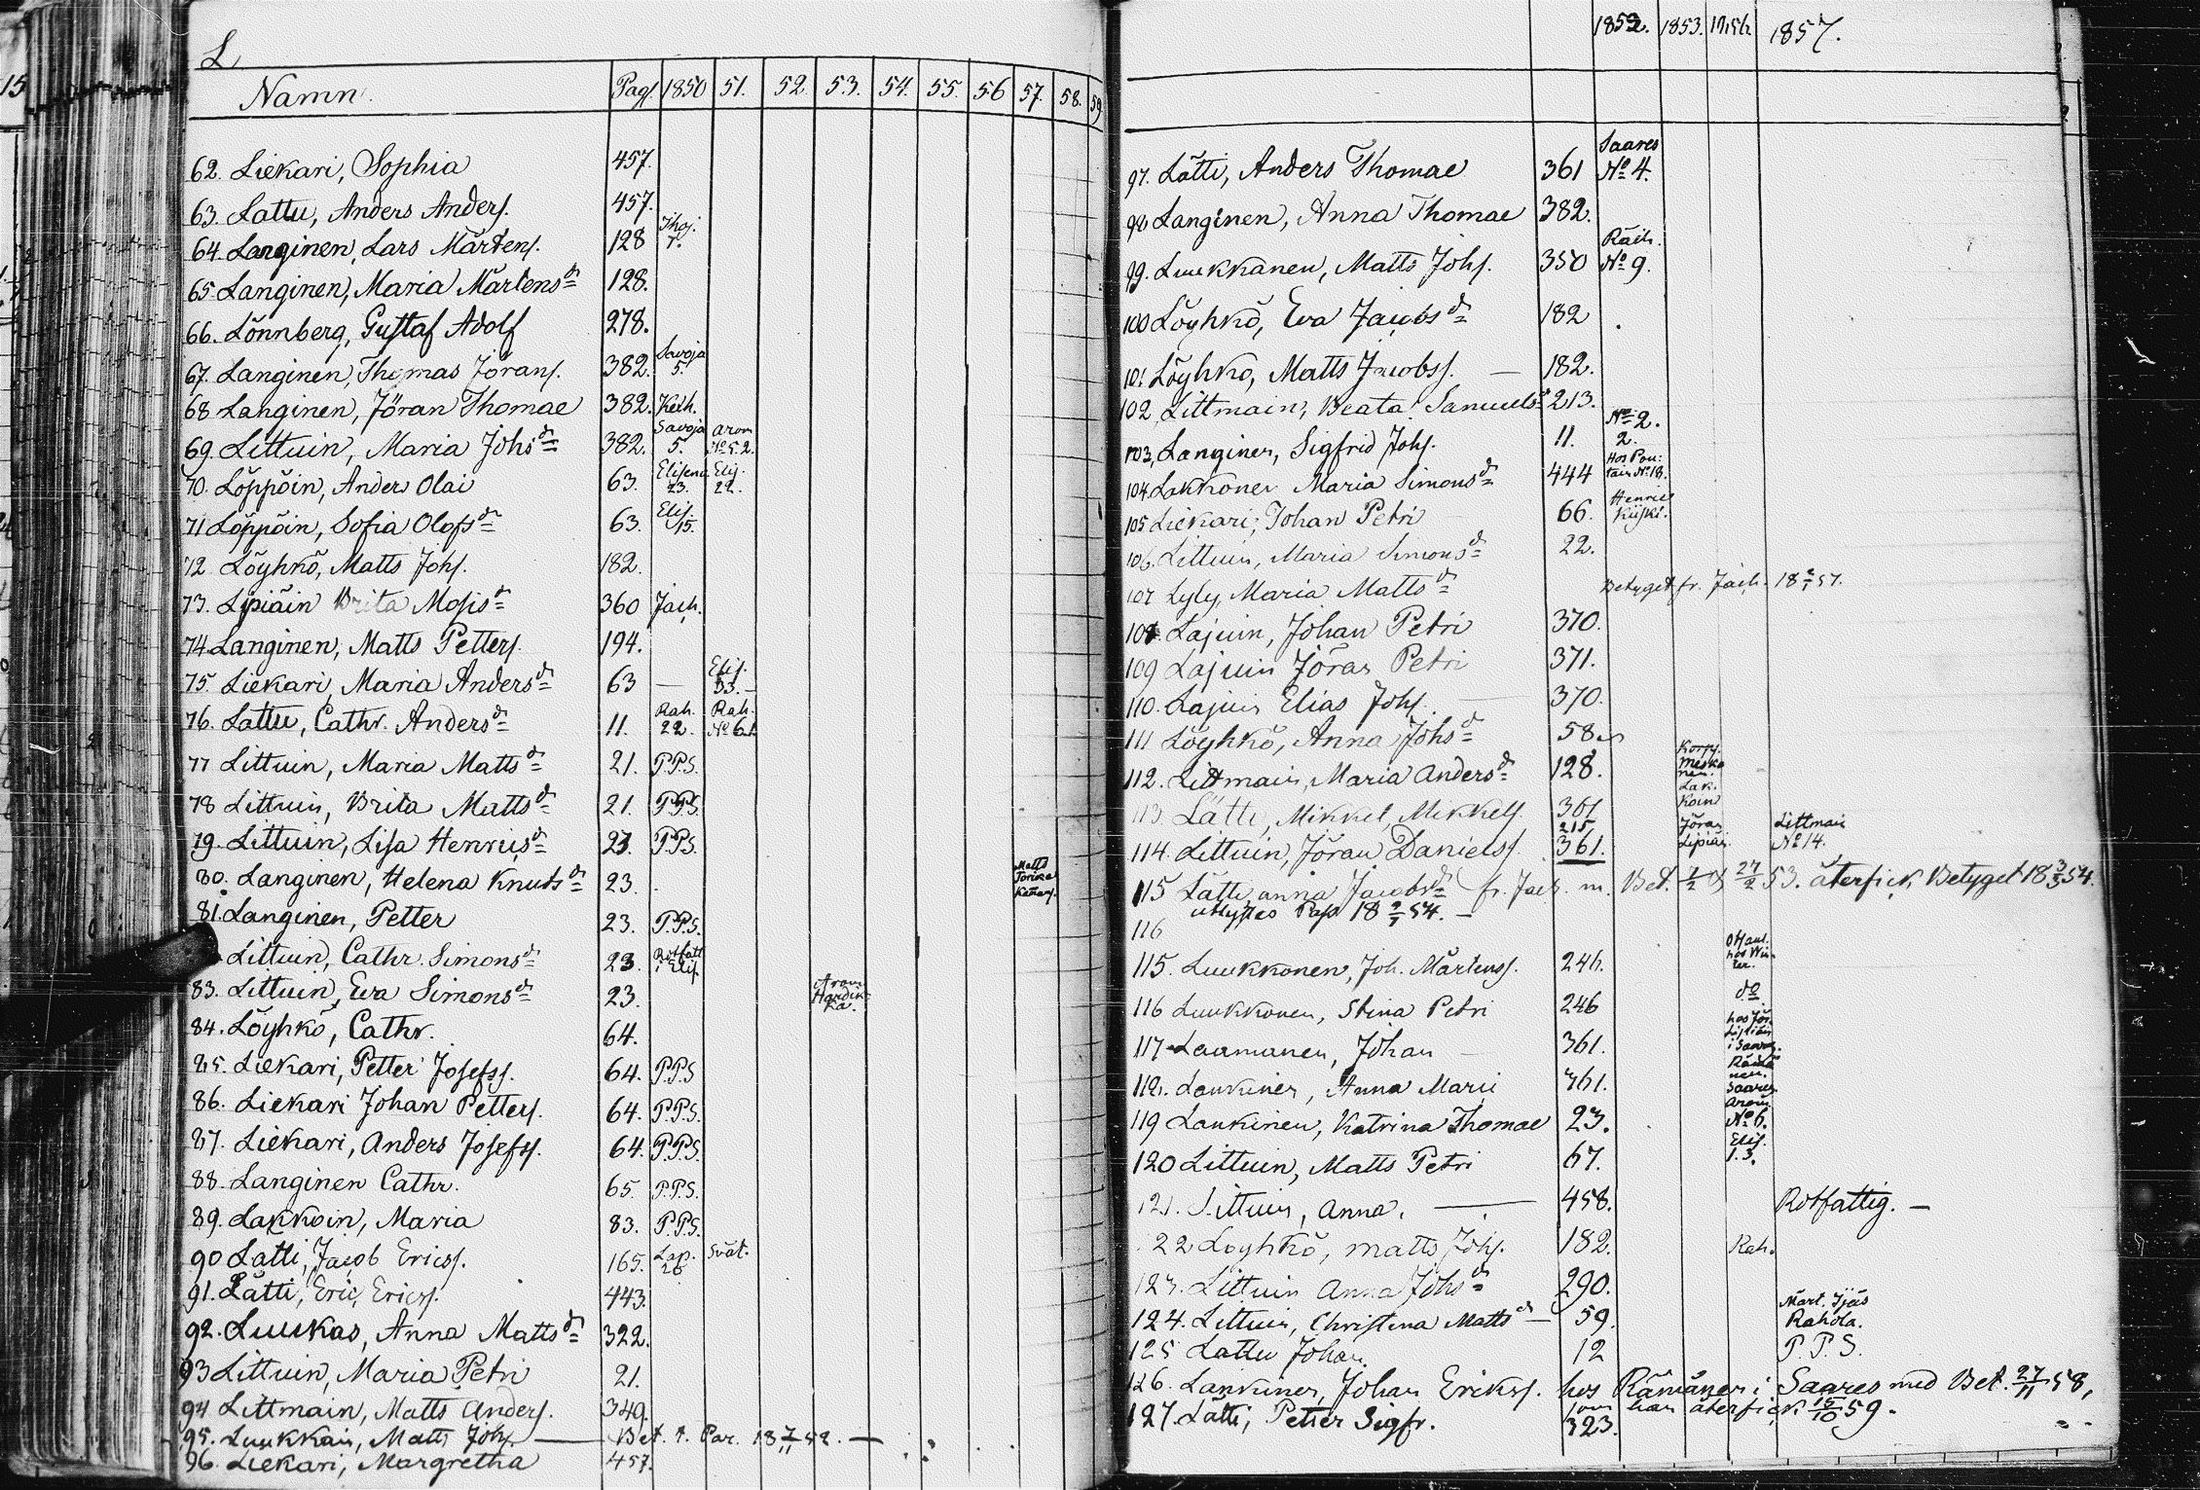 L
Namn. Pag. 1850 51. 52. 53. 54. 55. 56 57. 58. 59
62. Liekari, Sophia 457.
63. Lattu, Anders Anders. 457.
64. Langinen, Lars Mårtens. 128
65. Langinen, Maria Mårtensdr 128.
66. Lönnberg, Gustaf Adolf 278.
67. Langinen, Thomas Jörans. 382. Savoja 5.
68 Langinen, Jöran Thomae 382. Keih.
69. Littuin, Maria Johsdr 382. Savoja 5. Aron No 5.2.
70. Löppöin, Anders Olai 63. Elisenv. 23. Elis. 22.
71 Löppöin, Sofia Olofsdr 63. Elis. 15.
72 Löyhkö, Matts Johs. 182.
73. Lipiäin Brita Mosisdr 360 Jäeh.
74 Langinen, Matts Petters. 194.
75. Liekari, Maria Andersdr 63 — Elis. 33.
76. Lattu, Cathr. Andersdr 11. Rah. 22. Rah. No 61
77 Littuin, Maria Mattsdr 21. P.P.S.
78 Littuin, Brita Mattsdr 21. P.P.S.
79. Littuin, Lisa Henricsdr 23. P.P.S.
80. Langinen, Helena Knutsdr 23. Matts
81. Langinen, Petter 23. P.P.S.
Littuin, Cathr. Simonsdr 23. Rotfatt. i Elis.
83. Littuin, Eva Simonsdr 23. Aron
84. Löyhkö, Cathr. 64.
85. Liekari, Petter Josefss. 64. P.P.S
86. Liekari Johan Petters. 64. P.P.S.
87. Liekari, Anders Josefss. 64. P.P.S.
88. Langinen Cathr. 65. P.P.S.
89. Lakkoin, Maria 83. P.P.S.
90 Lätti, Jacob Ericss. 165. Lap. 26 Svät.
91. Lätti, Eric Ericss. 443.
92. Luukas, Anna Mattsdr 322.
93 Littuin, Maria Petri 21.
94 Littmain, Matts Anders. 349.
95. Luukkain, Matts Johs. — Bet. t. Par. 18 7/11 52. —
96. Liekari, Margretha 457.
1852. 1853. 1856 1857.
97. Lätti, Anders Thomae 361 Saares No 4.
98 Langinen, Anna Thomae 382.
99. Luukkanen, Matts Johs. 350 Räih. No 9.
100 Löyhkö, Eva Jacobsdr 182
101. Löyhkö, Matts Jacobss. — 182.
102. Littmain, Beata Samuelsdr 213.
103, Langinen, Sigfrid Johs. 11. No 2. 2.
104. Lakkonen Maria Simonsdr 444 Hos Pontain No 18.
105 Liekari, Johan Petri 66. Henric Kiiski.
106. Littuin, Maria Simonsdr 22.
107 Lyly, Maria Mattsdr Betyget fr. Jäeh. 18 2/1 57.
108. Lajuin, Johan Petri 370.
109 Lajuin Jöran Petri 371.
110. Lajuin Elias Johs. — 370.
111 Löyhkö, Anna Johsdr 58.
112. Littmain, Maria Andersdr 128.
113. Lätti, Mikkel Mikkels. 361 Lakkoin
114. Littuin, Jöran Daniels. 215 361. Jöran Lipiäi. Littmain No 14.
115 Lätti, Anna Jacobsdr fr. Jaeh. m. Bet. 27/2 53. återfick Betyget 18 3/3 54.
116
115. Luukkonen, Joh. Mårtenss. 246.
116 Luukkonen, Stina Petri 246 do
117 Laamanen, Johan — 361.
118. Lankinen, Anna Marii 361. Saares
119 Lankinen, Katrina Thomae 23. Aron No 6.
120 Littuin, Matts Petri 67. Elis. 13.
121. Littuin, Anna. — 458. Rotfattig. —
22 Löyhkö, Matts Johs. 182. Rah.
123. Littuin Anna Johsdr 290.
124. Littuin, Christina Mattsdr 59. Mårt. Ijäs Rahola.
125 Lattu Johan. 12 P.P.S.
126. Lankinen, Johan Erikss. hos Rämänen i Saares med Bet. 27/11 58,
som han återfick 15/10 59.
127. Lätti, Petter Sigfr. 323.